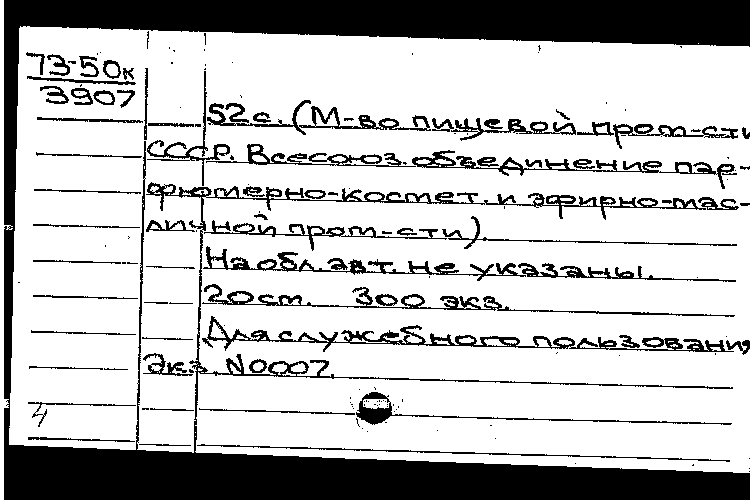 73-50к
3907
52с. (М-во пищевой пром-сти
СССР. Всесоюз. объединение пар-
фюмерно-космет. и эфирно-мас-
личной пром-сти).
На обл. авт. не указаны.
20см. 300 экз.
Для служебного пользования
Экз. N0007.
4